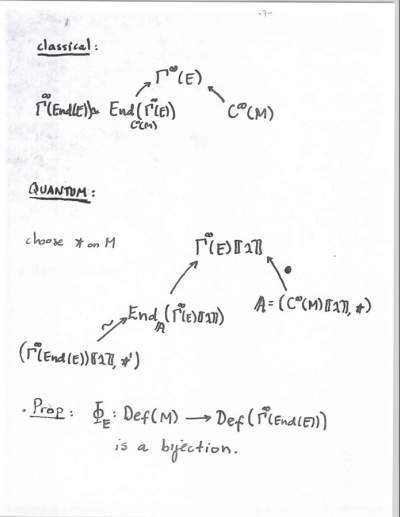 -7-
classical:
Γ^∞(E)
Γ^∞(End(E)) ≃ End_{C^∞(M)}(Γ^∞(E))
C^∞(M)
QUANTUM:
choose * on M
Γ^∞(E)[[λ]]
End_𝔸(Γ^∞(E)[[λ]])
𝔸 = (C^∞(M)[[λ]], *)
~
(Γ^∞(End(E))[[λ]], *')
• Prop: Φ_E : Def(M) → Def(Γ^∞(End(E)))
is a bijection.